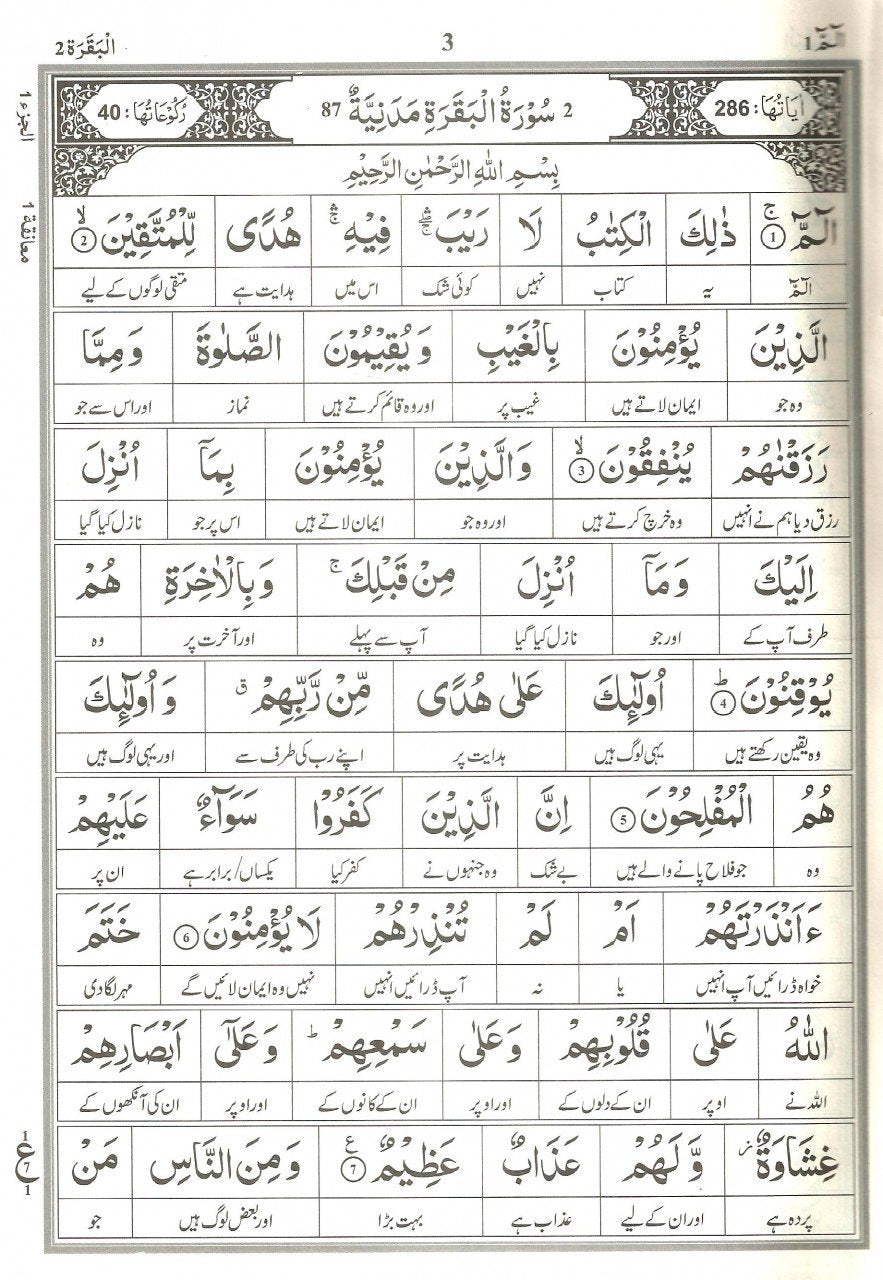 الٓمّٓ 1
3
الْبَقَرَة 2
الجزء 1
معانقة 1
اٰیَاتُهَا: 286
2 سُوْرَةُ الْبَقَرَةِ مَدَنِیَّةٌ 87
رُكُوْعَاتُهَا: 40
بِسْمِ اللهِ الرَّحْمٰنِ الرَّحِیْمِ
الٓمّٓ ۚ 1 ذٰلِكَ الْكِتٰبُ لَا رَیْبَ ۛۚ فِیْهِ ۛۚ هُدًی لِّلْمُتَّقِیْنَ ۙ 2
الٓمّٓ یہ کتاب نہیں کوئی شک اس میں ہدایت ہے متقی لوگوں کے لیے
الَّذِیْنَ یُؤْمِنُوْنَ بِالْغَیْبِ وَ یُقِیْمُوْنَ الصَّلٰوةَ وَ مِمَّا
وہ جو ایمان لاتے ہیں غیب پر اور وہ قائم کرتے ہیں نماز اور اس سے جو
رَزَقْنٰهُمْ یُنْفِقُوْنَ ۙ 3 وَ الَّذِیْنَ یُؤْمِنُوْنَ بِمَاۤ اُنْزِلَ
رزق دیا ہم نے انہیں وہ خرچ کرتے ہیں اور وہ جو ایمان لاتے ہیں اس پر جو نازل کیا گیا
اِلَیْكَ وَ مَاۤ اُنْزِلَ مِنْ قَبْلِكَ ۚ وَ بِالْاٰخِرَةِ هُمْ
طرف آپ کے اور جو نازل کیا گیا آپ سے پہلے اور آخرت پر وہ
یُوْقِنُوْنَ ؕ 4 اُولٰٓئِكَ عَلٰی هُدًی مِّنْ رَّبِّهِمْ ۗ وَ اُولٰٓئِكَ
وہ یقین رکھتے ہیں یہی لوگ ہیں ہدایت پر اپنے رب کی طرف سے اور یہی لوگ ہیں
هُمُ الْمُفْلِحُوْنَ 5 اِنَّ الَّذِیْنَ كَفَرُوْا سَوَآءٌ عَلَیْهِمْ
وہ جو فلاح پانے والے ہیں بے شک وہ جنہوں نے کفر کیا یکساں/برابر ہے ان پر
ءَاَنْذَرْتَهُمْ اَمْ لَمْ تُنْذِرْهُمْ لَا یُؤْمِنُوْنَ 6 خَتَمَ
خواہ ڈرائیں آپ انہیں یا نہ آپ ڈرائیں انہیں نہیں وہ ایمان لائیں گے مہر لگا دی
اللهُ عَلٰی قُلُوْبِهِمْ وَ عَلٰی سَمْعِهِمْ ؕ وَ عَلٰۤی اَبْصَارِهِمْ
اللہ نے اوپر ان کے دلوں کے اور اوپر ان کے کانوں کے اور اوپر ان کی آنکھوں کے
غِشَاوَةٌ ؗ وَّ لَهُمْ عَذَابٌ عَظِیْمٌ ۧ 7 وَ مِنَ النَّاسِ مَنْ
پردہ ہے اور ان کے لیے عذاب ہے بہت بڑا اور بعض لوگ ہیں جو
1
ع
7
1